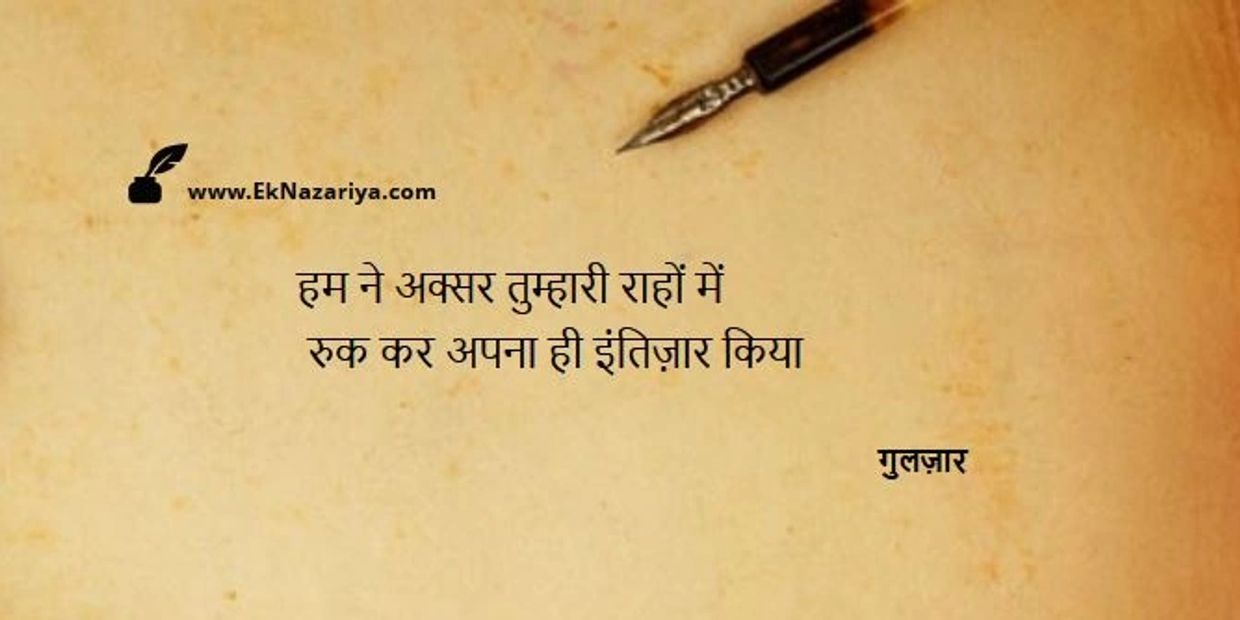 www.EkNazariya.com
हम ने अक्सर तुम्हारी राहों में
रुक कर अपना ही इंतिज़ार किया
गुलज़ार